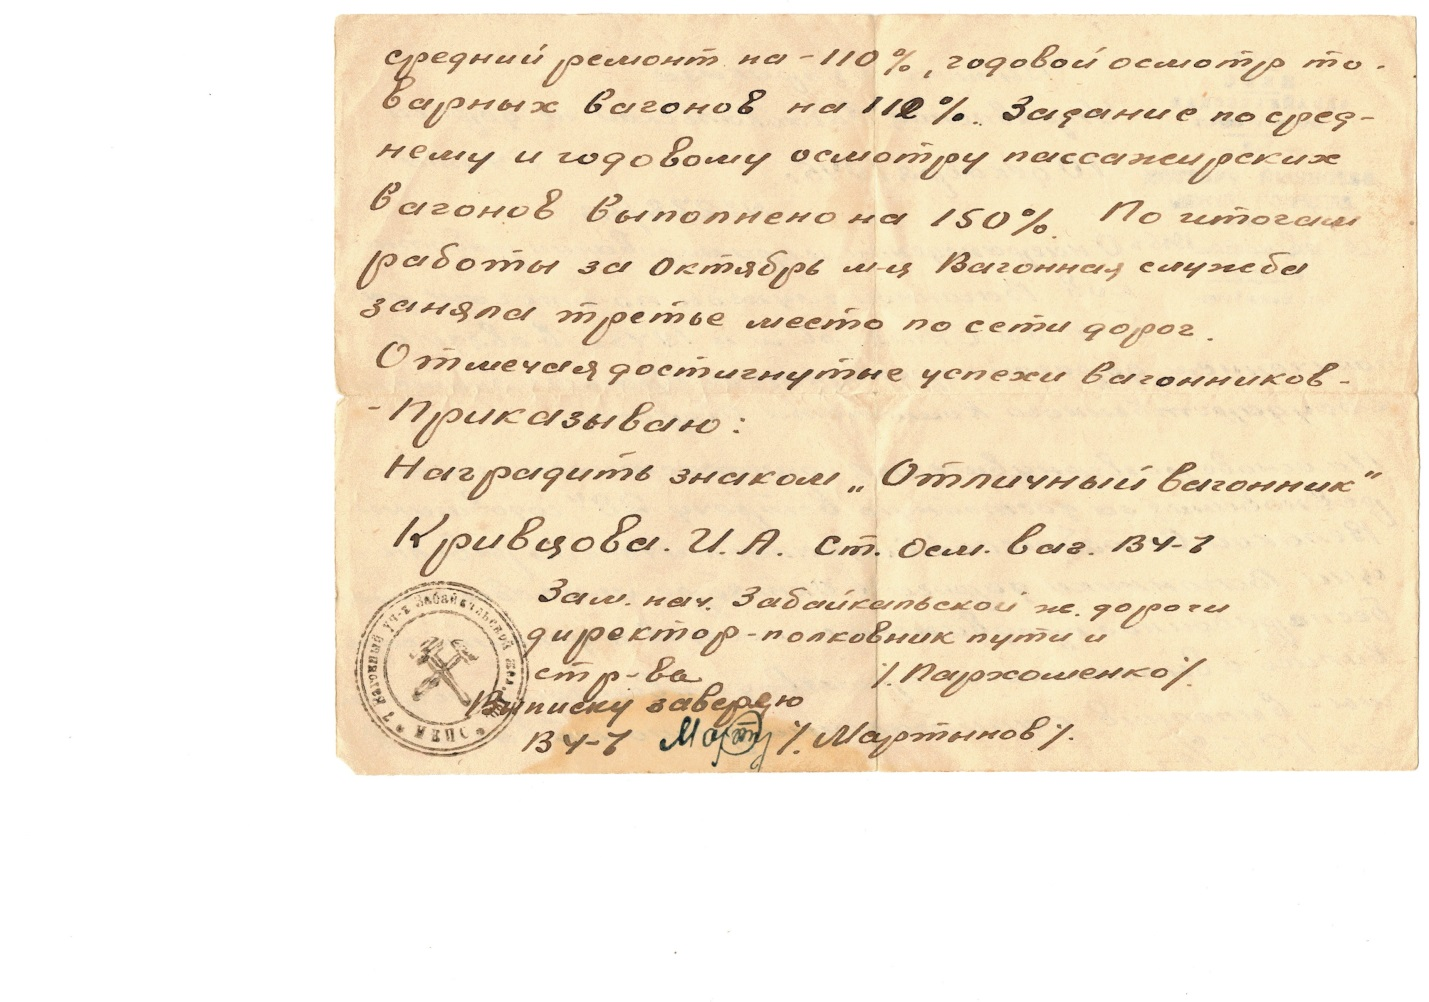 средний ремонт на - 110%, годовой осмотр то-
варных вагонов на 112%. Задание по сред-
нему и годовому осмотру пассажирских
вагонов выполнено на 150%. По итогам
работы за Октябрь м-ц Вагонная служба
заняла третье место по сети дорог.
Отмечая достигнутые успехи вагонников -
- Приказываю:
Наградить знаком „Отличный вагонник"
Кривцова. И. А. ст. осм. ваг. ВЧ-7
Зам. нач. Забайкальской ж. дороги
директор-полковник пути и
стр-ва /. Пархоменко /.
Выписку заверяю
ВЧ-7 /. Мартынов /.
7 вагонный уч-к Забайкальской жел.